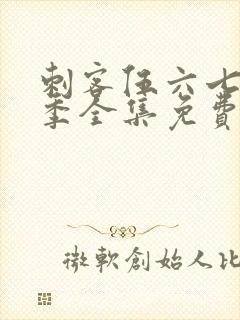 刺客伍六七
季全集免費
微軟創始人比